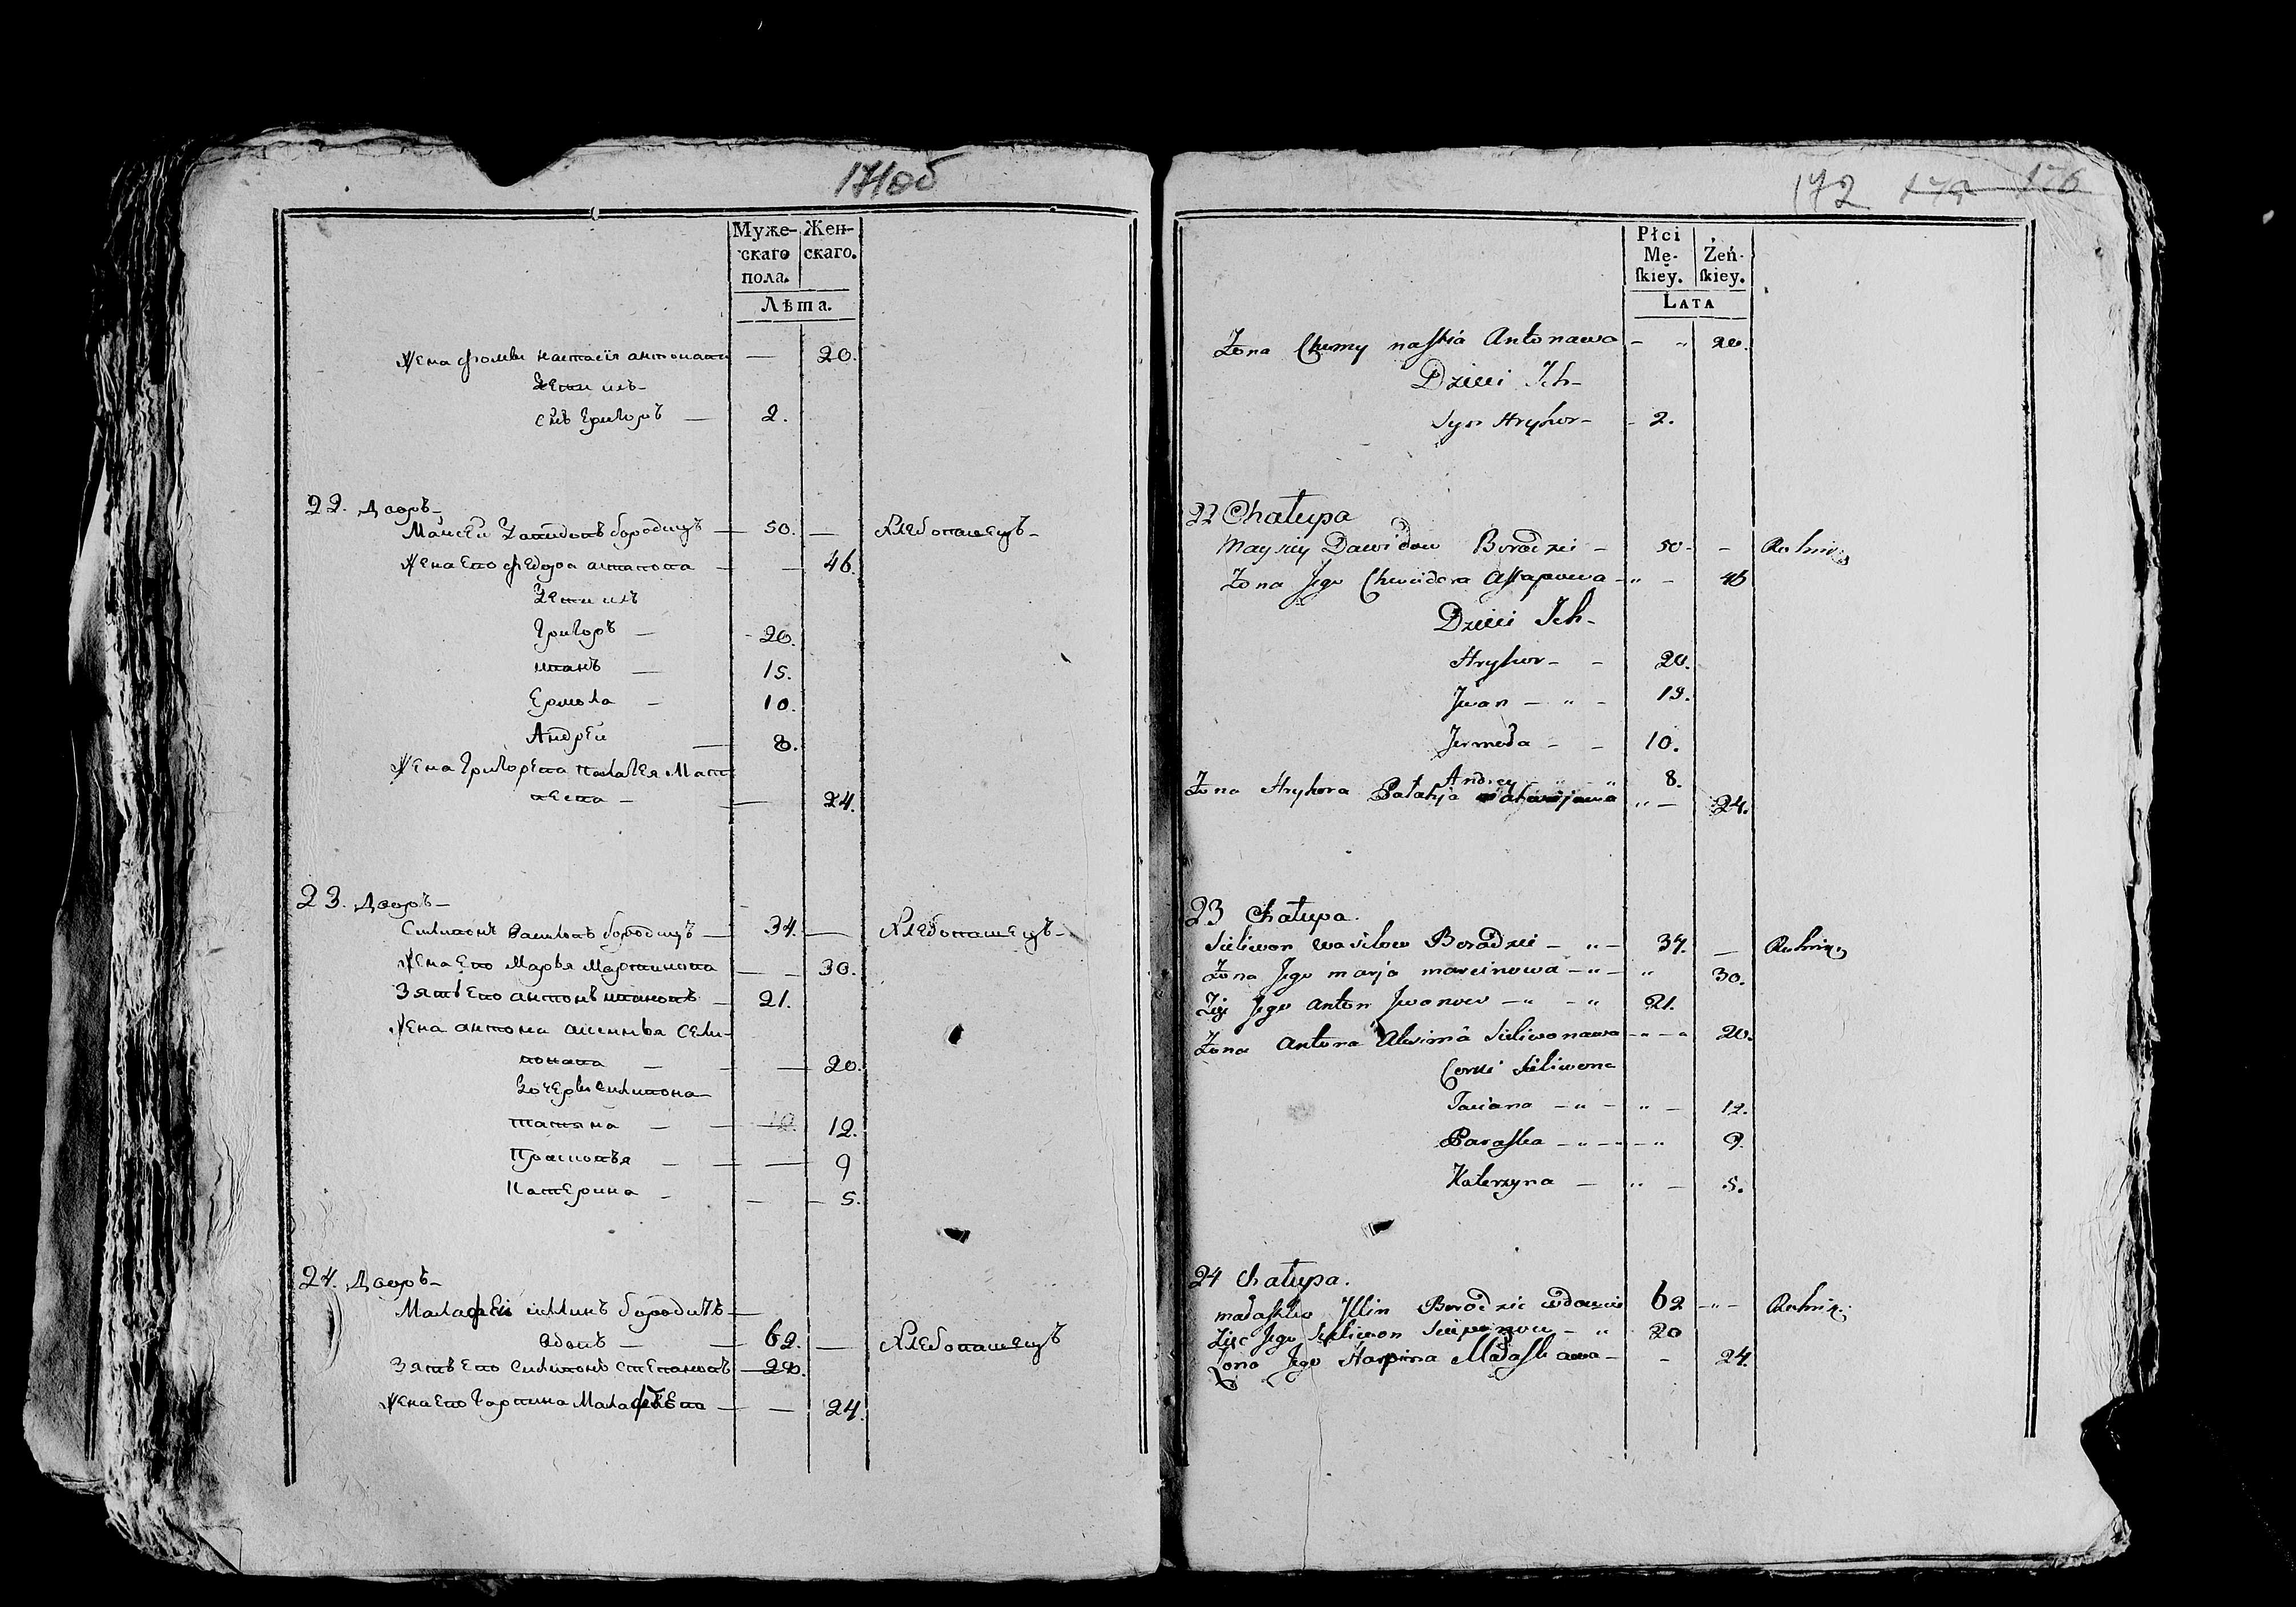 171об
Муже- Жен-
скаго скаго.
пола.
Лѣта.
Жена Фомы Настасія Антонова — 20.
Дети ихъ
сынъ Григоръ — 2.
22. Дворъ
Мойсей Давидовъ Бородичъ — 50. — Хлебопашецъ
Жена Его Федора Астапова — — 46.
Дети ихъ
Григоръ — 20.
Иванъ — 15.
Ермола — 10.
Андрей — 8.
Жена Григорева Палагея Мат
веева — — 24.
23. Дворъ
Силивонъ Васильевъ Бородичъ — 34. — Хлебопашецъ
Жена Его Марья Мартинова — — 30.
Зять Его Антонъ Ивановъ — 21.
Жена Антона Сели-
вонова — — 20.
Дочеры Силивона
Татьяна — — 12.
Просковья — — 9
Катерина — — 5.
24. Дворъ
Малафей Иллинъ Бородичъ —
вдовъ — 62. — Хлебопашецъ
Зять Его Силивонъ Степановъ — 20.
Жена Его Гарпина Малафѣева — — 24.
172 176
Płci
Mę- Żeń-
skiey. skiey.
LATA
Żona Chomy Nastia Antonowa - " 20.
Dzieci Ich -
Syn Hryhor - 2.
22 Chałupa
Maysiey Dawidow Borodzicz - 50 - - Rolnik
Żona Jego Chwiedora Astapowa - " - 46
Dzieci Ich -
Hryhor - - 20.
Jwan - " - 15.
Jermoła - - 10.
Andrey " " 8.
Żona Hryhora Pałahja Matwiejewa " - 24.
23 Chałupa.
Sieliwon Wasilow Borodzicz - " - 34. - Rolnik
Żona Jego Marja Marcinowa - " - " 30.
Zięć Jego Anton Jwanow - " - " 21.
Żona Antona Sieliwonowa - " - " 20.
Corki Sieliwona
Taciana - " - " - 12.
Paraska - " - - " 9.
Katerzyna - " - 5.
24 Chałupa.
Małaſkiey Jllin Borodzic wdowiec 62 - " - Rolnik
Zięć Jego Sieliwon Sciepanow - " 20
Żona Jego Harpina - - 24.